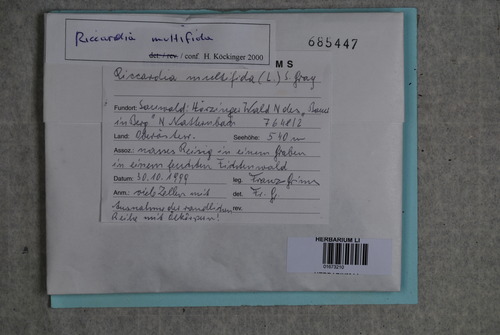 Riccardia multifida
det. / rev. / conf. H. Köckinger 2000
685447
M S
Riccardia multifida (L.) S. Gray
Fundort: Sauwald: Härzinger Wald N des "Bauer
in Berg" N Natternbach 7648/2
Land: Oberösterr. Seehöhe: 540 m
Assoz.: nasses Reisig in einem Graben
in einem feuchten Fichtenwald
Datum: 30.10.1999 leg. Franz Grims
Anm.: viele Zellen mit det. Fr. G.
Ausnahme der randlichen rev.
Reihe mit Ölkörpern!
HERBARIUM LI